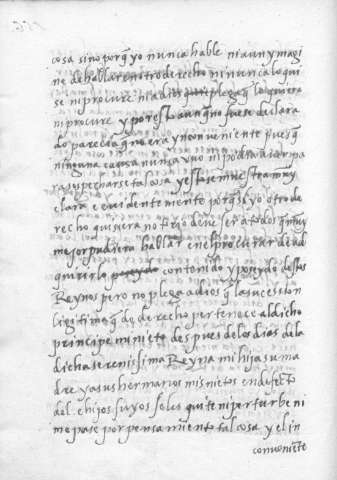 cosa sino porq̃ yo nunca hable ni aun ymagi
ne de hablar en otro derecho ni nunca lo qui
se ni procure ni a dios plega q̃ lo quiera
ni procure y por esto aunq̃ no fuese declara
do parecio q̃ no era ynconueniente pues q̃
ninguna causa nunca vuo ni podria auer ma
ra sospecharse tal cosa y esto se muestra muy
clara e euidentemente porq̃ si yo otro de
recho quisiera no tengo deue ser a todos q̃ muy
mejor pudiera hablar en el procurar de ad
quirirlo con tenido y poseydo estos
Reynos pero no plega a dios q̃ la sucesion
ligitima q̃ de derecho pertenece al dicho
principe mi nieto despues de los dias de la
dicha serenissima Reyna mi hija su ma
dre y a sus hermanos mis nietos en defecto
del e hijos suyos se les quite ni perturbe ni
me pase por pensamiento tal cosa y el in
conueniẽte